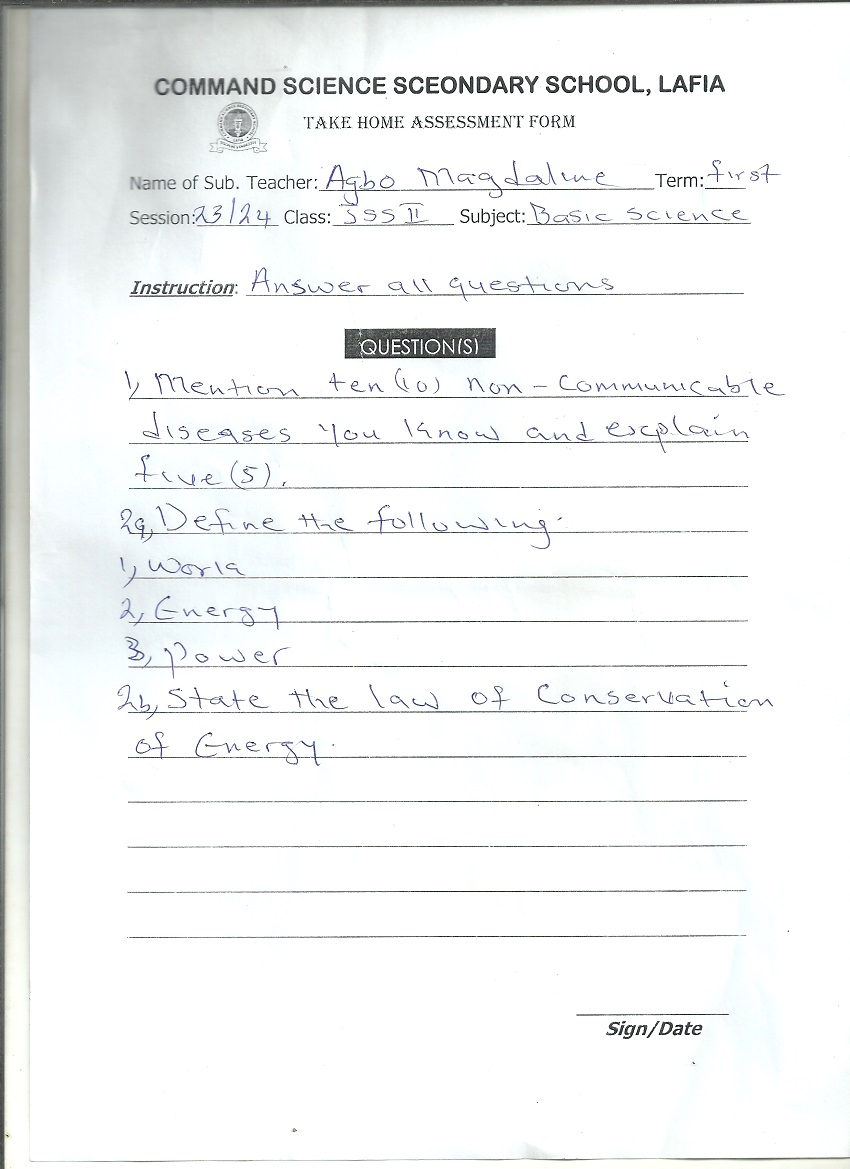 COMMAND SCIENCE SCEONDARY SCHOOL, LAFIA
TAKE HOME ASSESSMENT FORM
Name of Sub. Teacher: Agbo Magdaline Term: first
Session: 23/24 Class: JSS II Subject: Basic science
Instruction: Answer all questions
QUESTION(S)
1, Mention ten (10) non-communicable
diseases you know and explain
five (5).
2a, Define the following.
1, Work
2, Energy
3, Power
2b, State the law of Conservation
of Energy.
Sign/Date